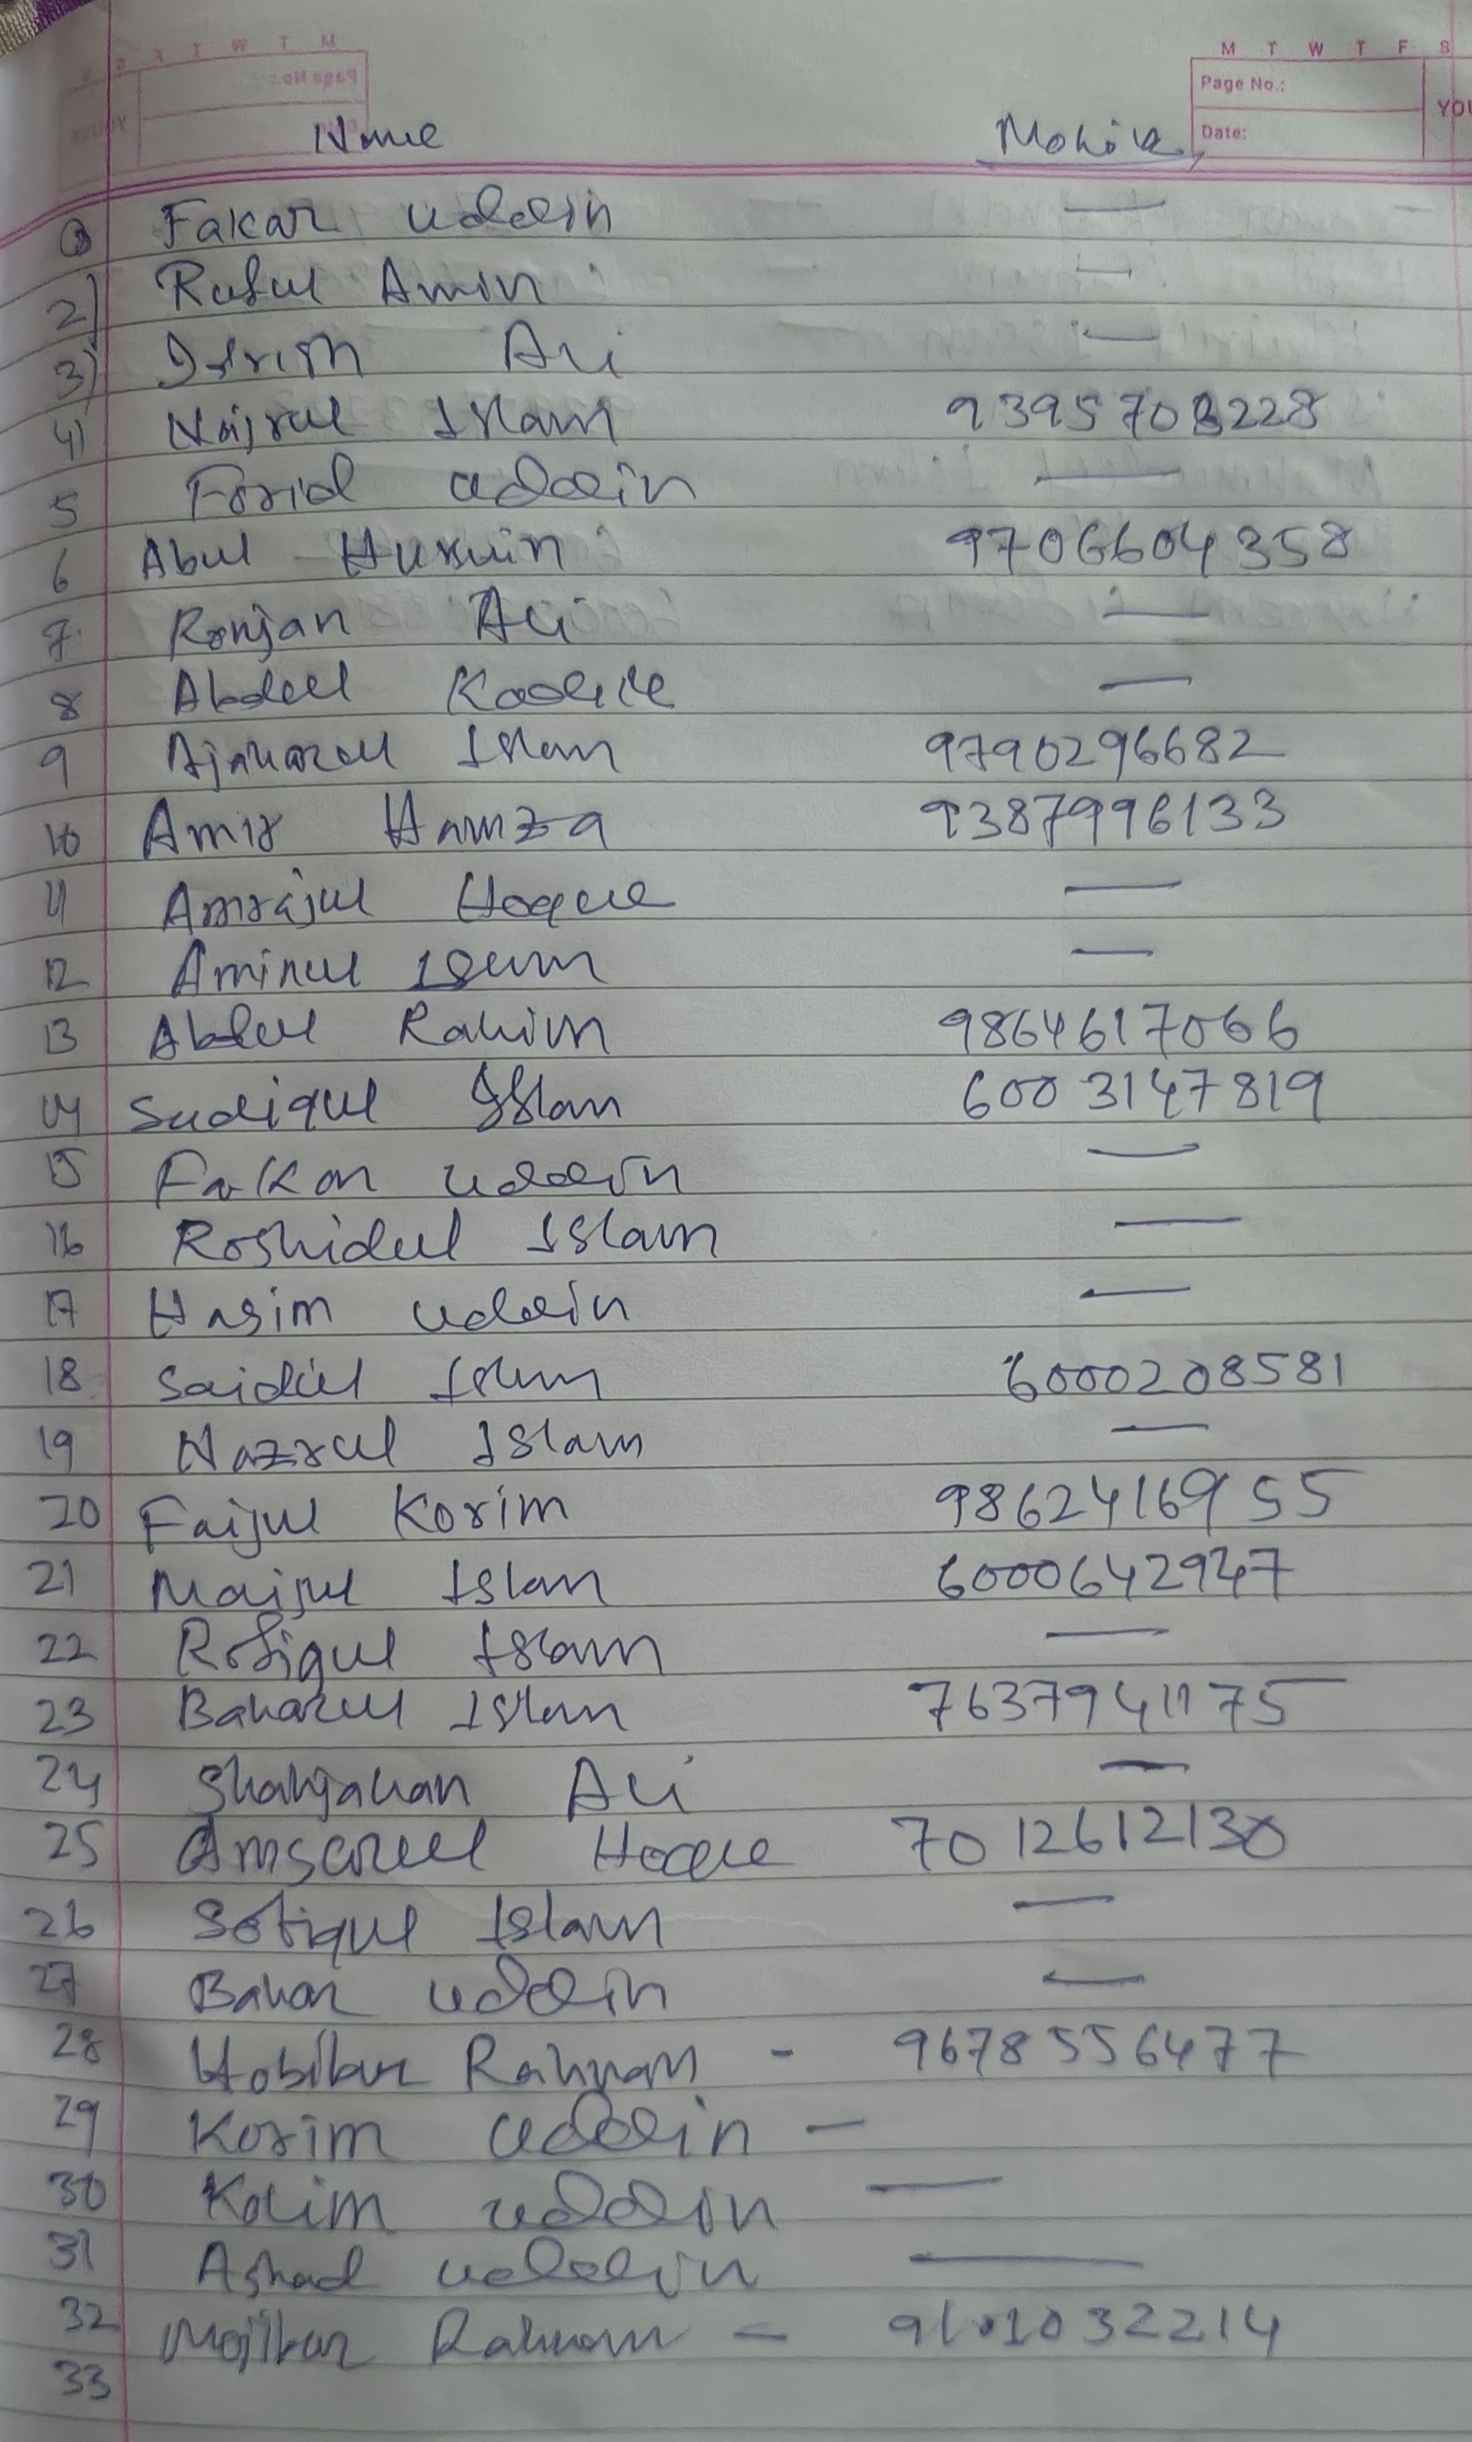 M T W T F S
Page No.:
YOU
Date:
Name Mobile
1 Fakar uddin —
2) Ruful Amin —
3) Idrish Ali —
4) Najrul Islam 9395708228
5 Forid uddin —
6 Abul Hussuin 9706604358
7. Ronjan Ali —
8 Abdul Kadir —
9 Ajaharul Islam 9790296682
10 Amir Hamza 9387996133
11 Amrajul Hoque —
12 Aminul Islam —
13 Abdul Rahim 9864617066
14 Sadiqul Islam 6003147819
15 Fakkar uddin —
16 Roshidul Islam —
17 Hasim uddin —
18 Saidul Islam 6000208581
19 Nazrul Islam —
20 Faijul Korim 9862416955
21 Maijul Islam 6000642947
22 Rofiqul Islam —
23 Baharul Islam 7637941175
24 Shahjahan Ali —
25 Amsarul Hoque 7012612130
26 Sofiqul Islam —
27 Bahar uddin —
28 Hobibur Rahman - 9678556477
29 Korim uddin —
30 Kolim uddin —
31 Ashad uddin —
32 Mojibur Rahman —
33